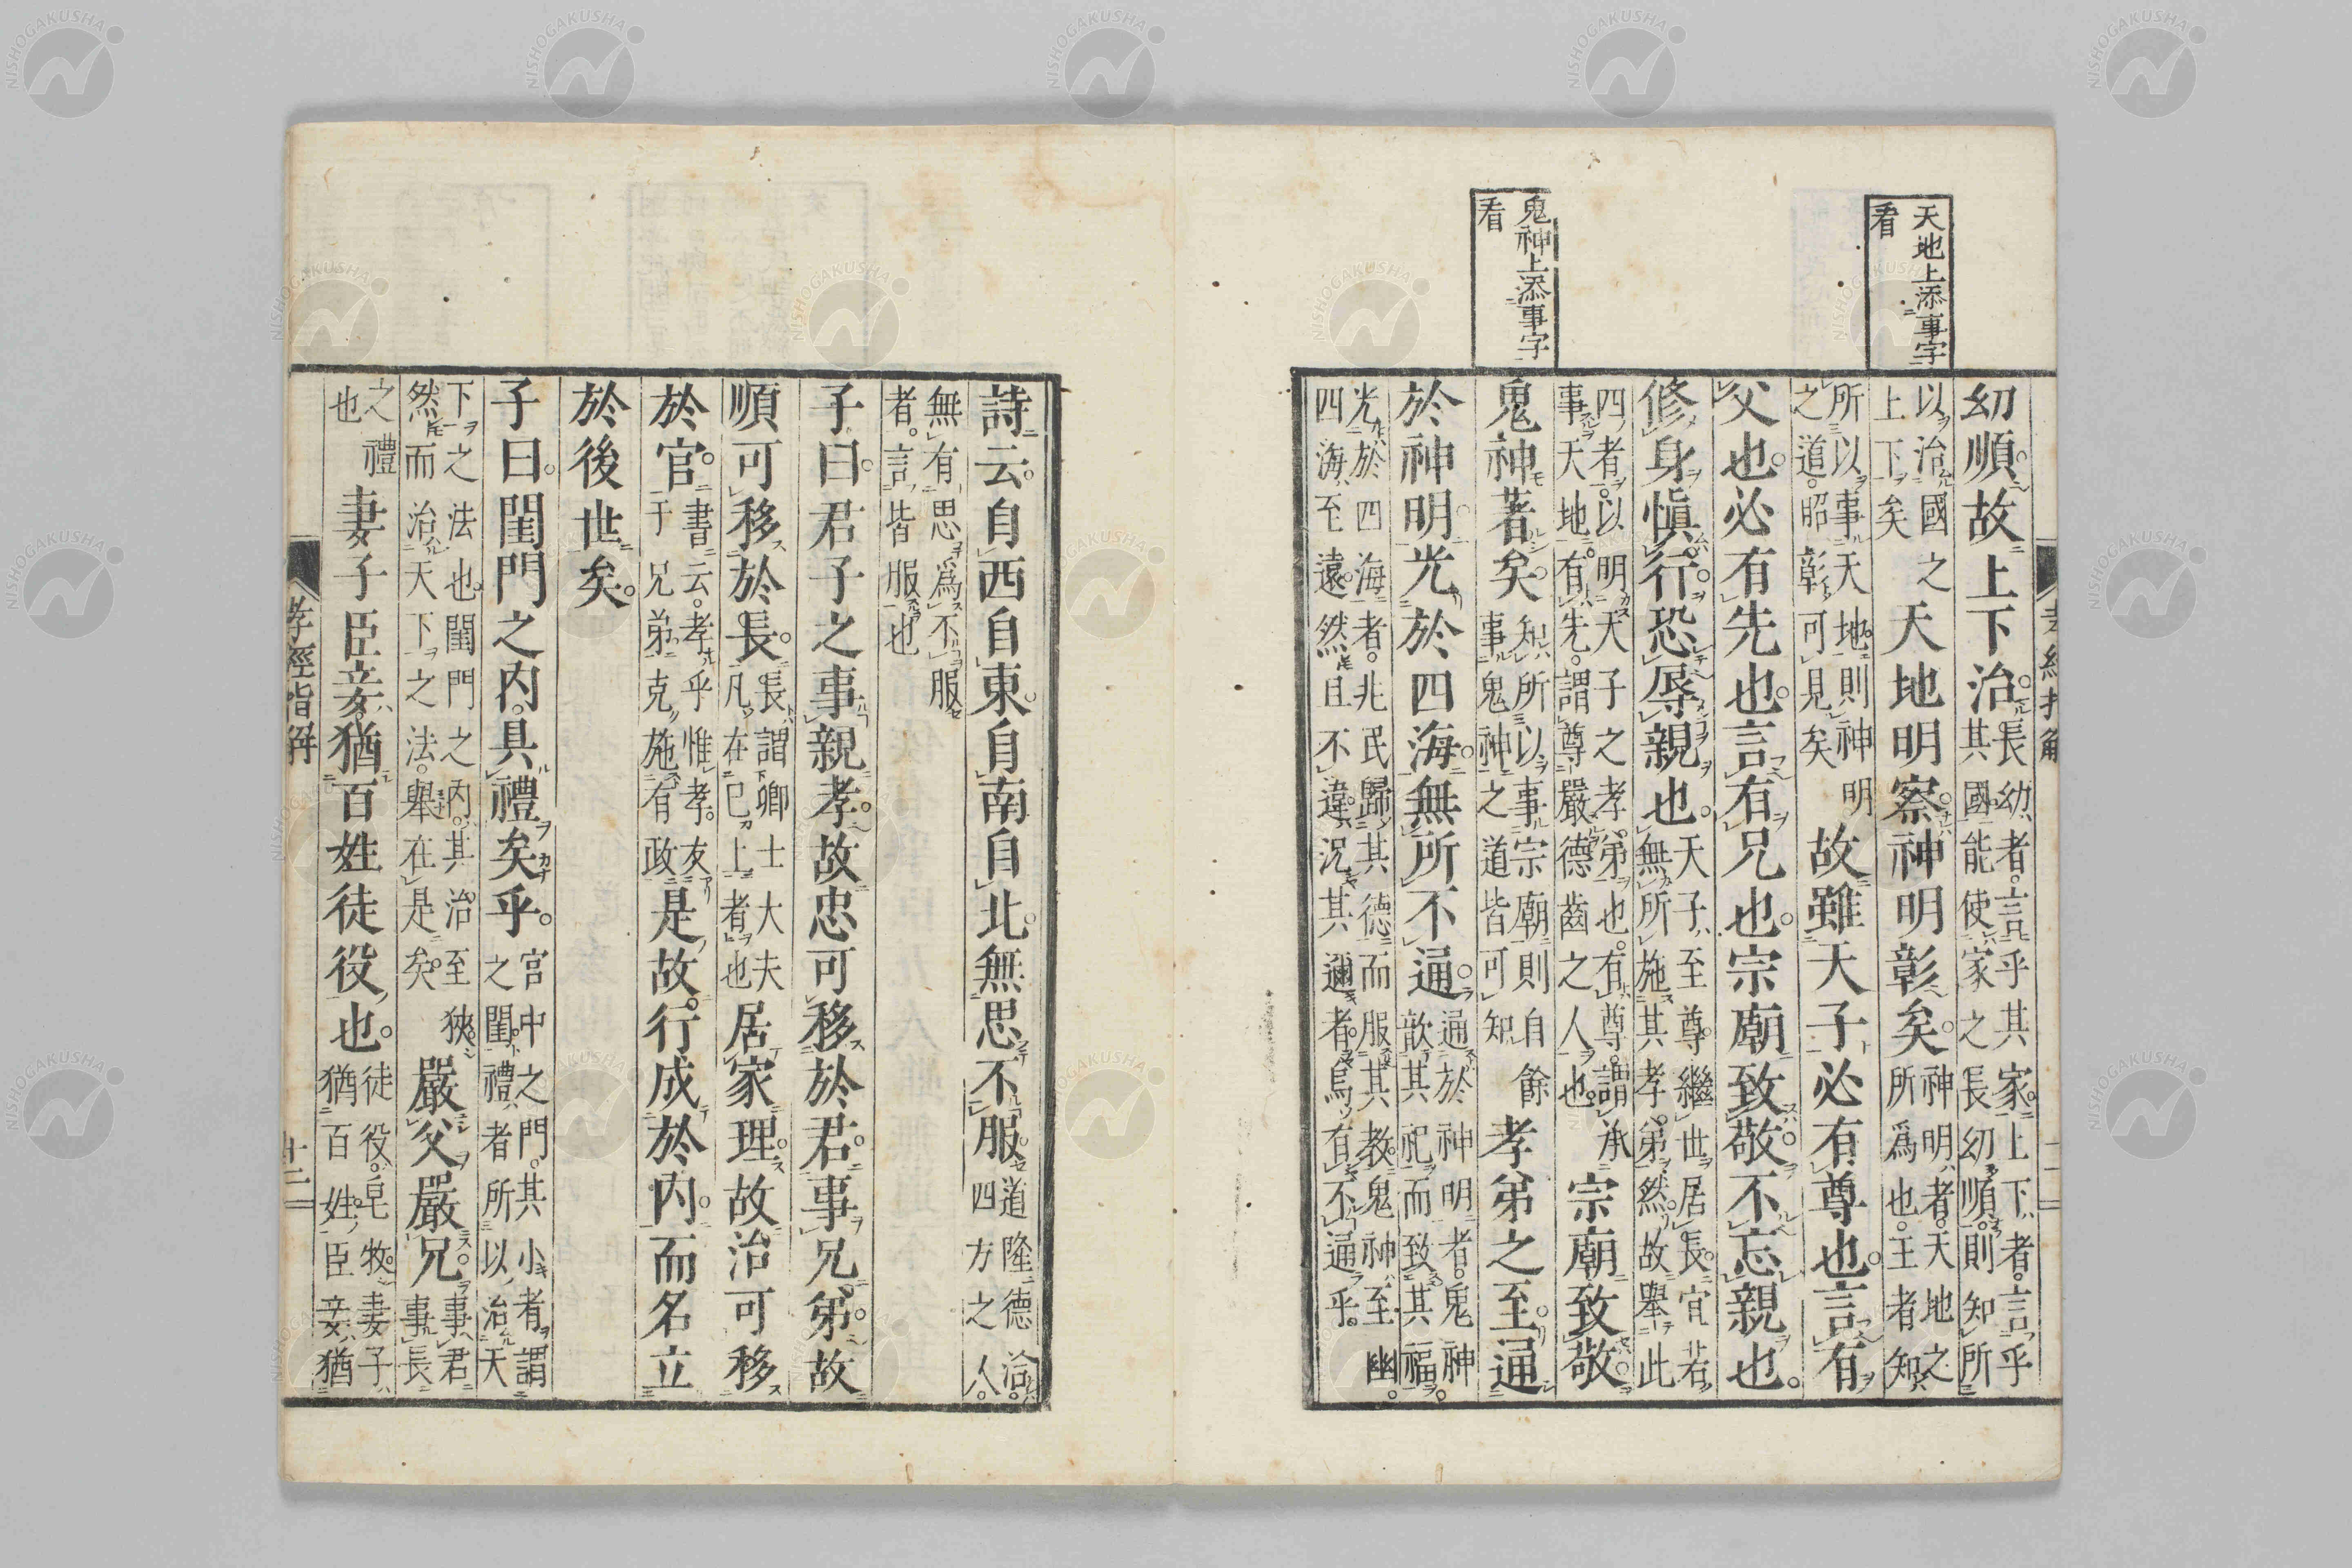 天地上添事字
看
鬼神上添事字
看
幼順。故上下治。長幼者。言乎其家。上下者。言乎其國能使家之長幼順。則知所
以治國之上下矣天地明察。神明彰矣。神明者。天地之所爲也。王者知
所以事天地。則神明之道。昭彰可見矣故雖天子必有尊也。言有
父也。必有先也。言有兄也。宗廟致敬。不忘親也。
修身愼行。恐辱親也。天子至尊。繼世居長。宜若無所施其孝弟然。故舉此
四者。以明天子之孝弟也。有尊。謂承事天地。有先。謂尊嚴德齒之人也。宗廟致敬。
鬼神著矣。知所以事宗廟則自餘事鬼神之道皆可知孝弟之至。通
於神明。光於四海。無所不通。通於神明者。鬼神歆其祀而致其福。
光於四海者。兆民歸其德而服其教。鬼神至幽。四海至遠。然且不違。況其邇者。烏有不通乎。
詩云。自西自東。自南自北。無思不服。道隆德洽。四方之人。
無有思爲不服者。言皆服也
子曰。君子之事親孝。故忠可移於君。事兄弟。故
順可移於長。長謂卿士大夫凡在己上者也居家理。故治可移
於官。書云。孝乎惟孝。友于兄弟克施有政是故。行成於內。而名立
於後世矣。
子曰。閨門之內。具禮矣乎。宮中之門。其小者謂之閨。禮者所以治天
下之法也。閨門之內。其治至狹。然而治天下之法。舉在是矣。嚴父嚴兄。事君事長
之禮也妻子臣妾。猶百姓徒役也。徒役。皂牧。妻子猶百姓。臣妾猶
孝經指解
十二